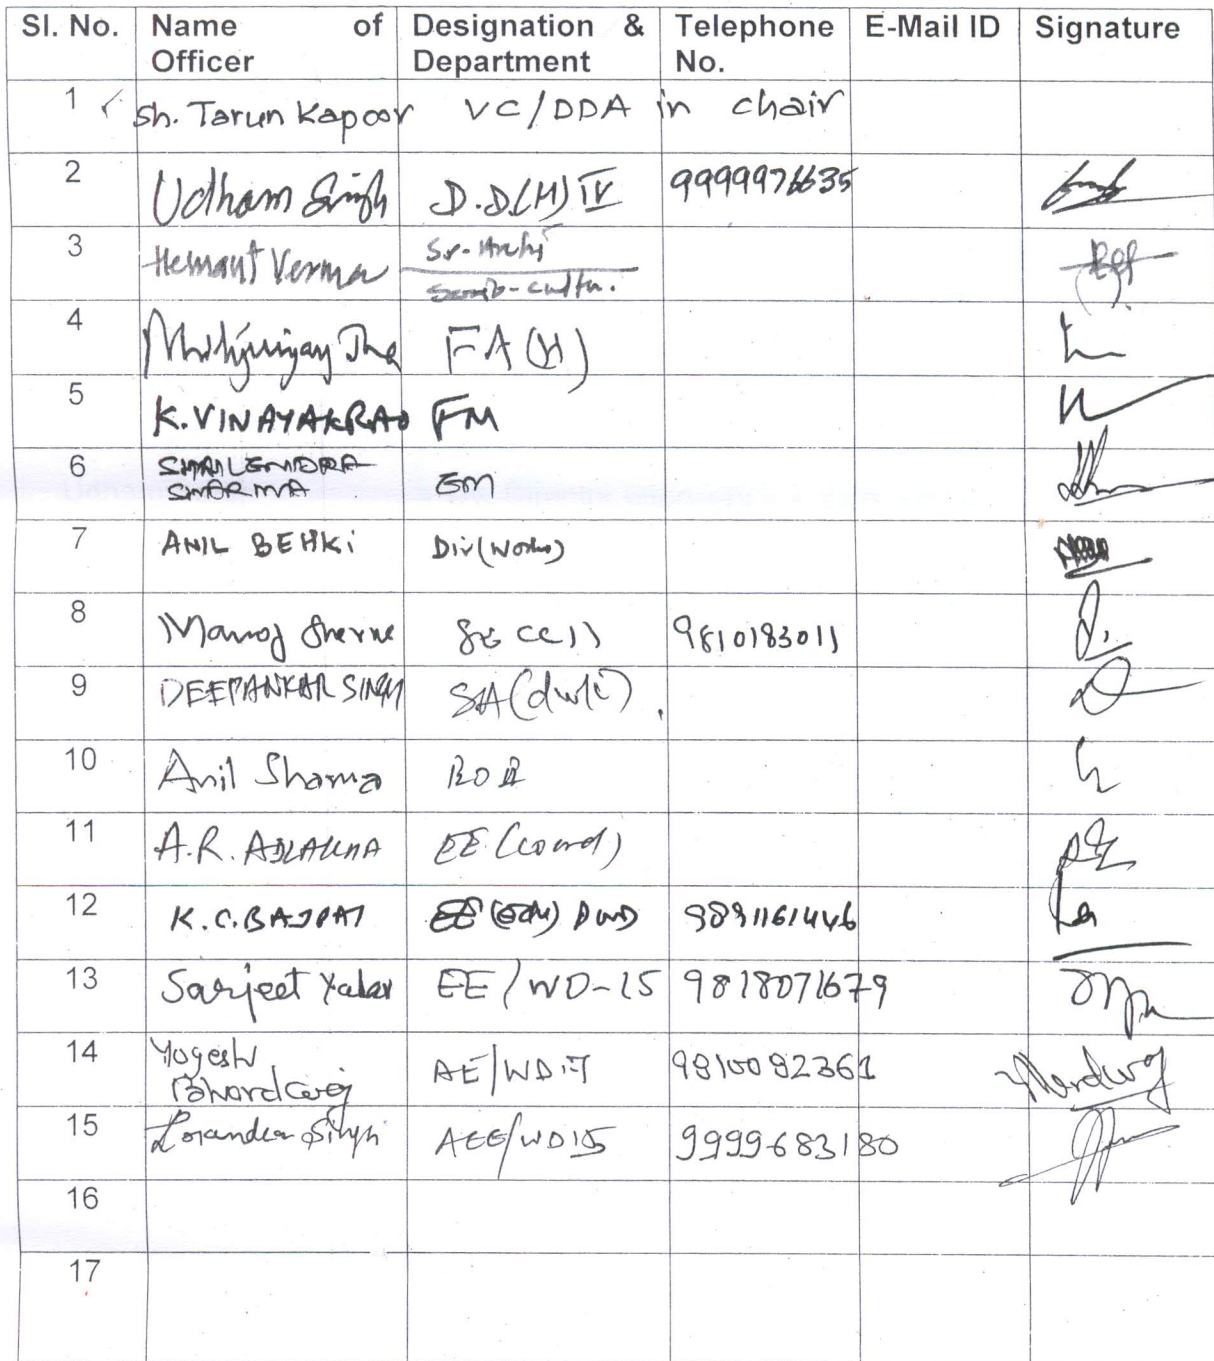 Sl. No. Name of Officer Designation & Department Telephone No. E-Mail ID Signature
1 Sh. Tarun Kapoor VC/DDA in chair
2 Udham Singh D.D(H) IV 9999976635
3 Hemant Verma Sr. Archi
4 Jha FA (H)
5 K. VINAYAKRAO FM
6 SHAILENDRA SHARMA EM
7 ANIL BEHKi Div(works)
8 Manoj SE CC 11 9810183011
9 DEEPANKAR SINGH SA
10 Anil Sharma
11 A.R. ADLAKHA EE (coord)
12 K.C. BAJPAI
13 Sarjeet Yadav EE/WD-15 9818071679
14 Yogesh Bhardwaj AE/WD 9810092361
15 Singh AEE/WD15 9999683180
16
17